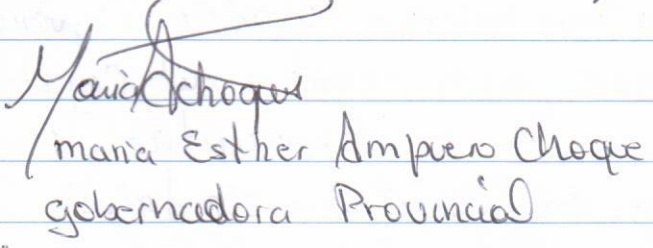 María Choque
maria Esther Ampuero Choque
gobernadora Provincial